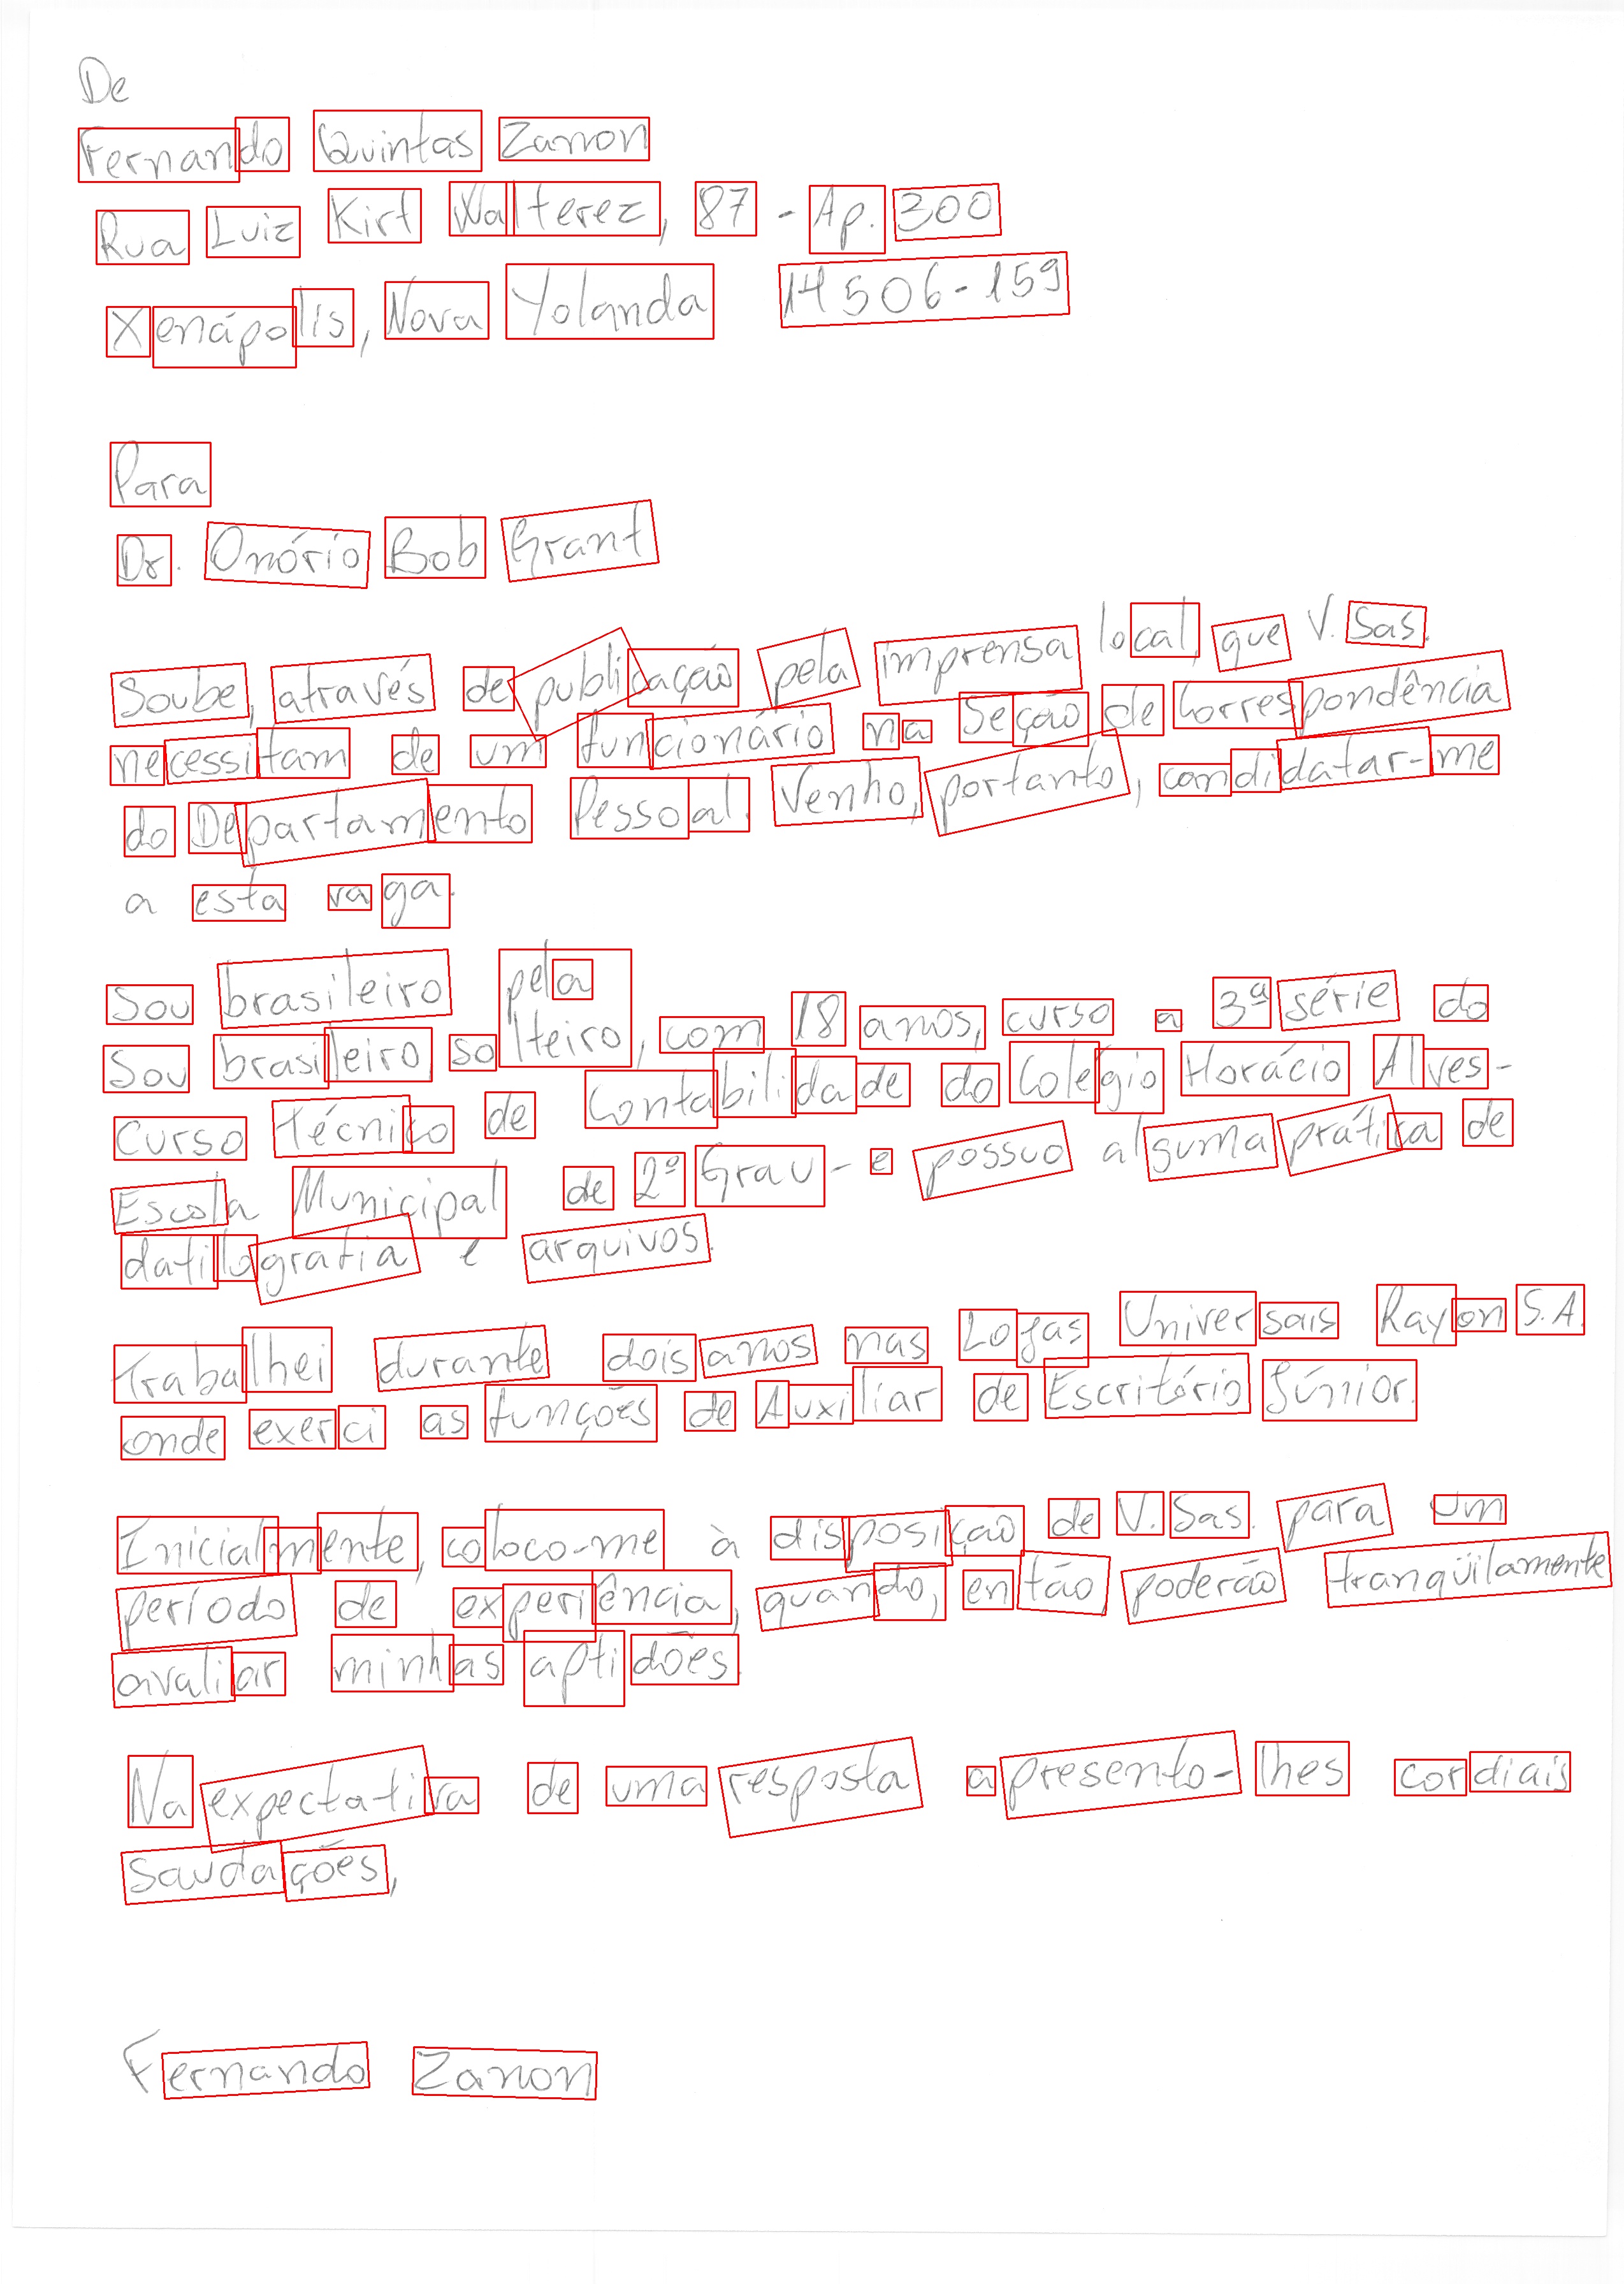 De
Fernando Quintas Zanon
Rua Luiz Kirt Walterez, 87 - Ap. 300
Xenápolis, Nova Yolanda 14506-159
Para
Dr. Onório Bob Grant
Soube, através de publicação pela imprensa local, que V. Sas.
necessitam de um funcionário na Seção de Correspondência
do Departamento Pessoal. Venho, portanto, candidatar-me
a esta vaga.
Sou brasileiro pela
Sou brasileiro, solteiro, com 18 anos, curso a 3ª série do
Curso Técnico de Contabilidade do Colégio Horácio Alves -
Escola Municipal de 2º Grau - e possuo alguma prática de
datilografia e arquivos.
Trabalhei durante dois anos nas Lojas Universais Rayon S.A.
onde exerci as funções de Auxiliar de Escritório Júnior.
Inicialmente, coloco-me à disposição de V. Sas. para um
período de experiência, quando, então, poderão tranqüilamente
avaliar minhas aptidões.
Na expectativa de uma resposta apresento-lhes cordiais
saudações,
Fernando Zanon